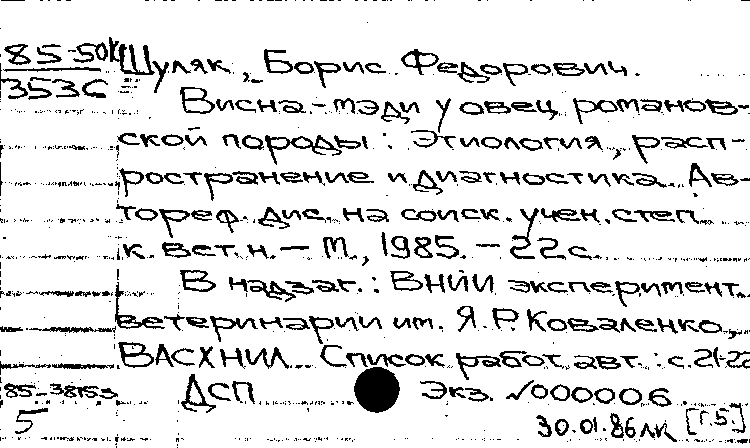 85-50к Шуляк, Борис Федорович.
3536
Висна-мэди у овец романов-
ской породы: Этиология, расп-
ространение и диагностика. Ав-
тореф. дис. на соиск. учен. степ.
к. вет. н. — М., 1985. — 22 с.
В надзаг.: ВНИИ эксперимент.
ветеринарии им. Я.Р. Коваленко,
ВАСХНИЛ. Список работ авт.: с. 21-22
85-38153 ДСП Экз. №000006
5 30.01.86 лк [г.5.]